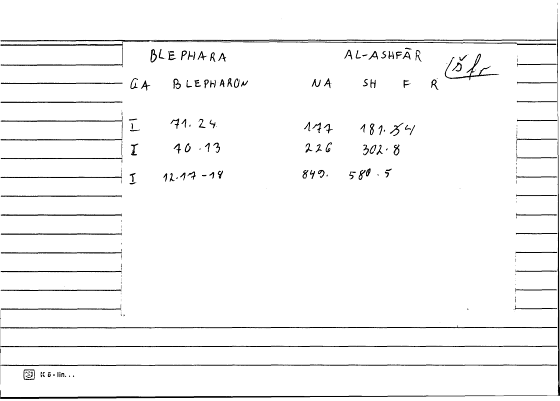 BLEPHARA AL-ASHFĀR šfr
GA BLEPHARON NA SH F R
I 71.24 177 181.54
I 70.13 226 302.8
I 12.17-18 849. 580.5
IC 6-lin...